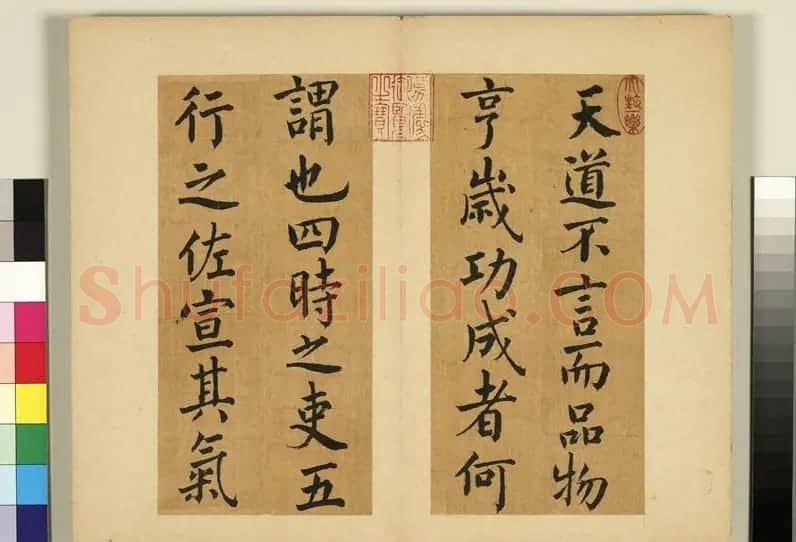 天道不言而品物
亨歲功成者何
謂也四時之吏五
行之佐宣其氣
Shufaziliao.COM